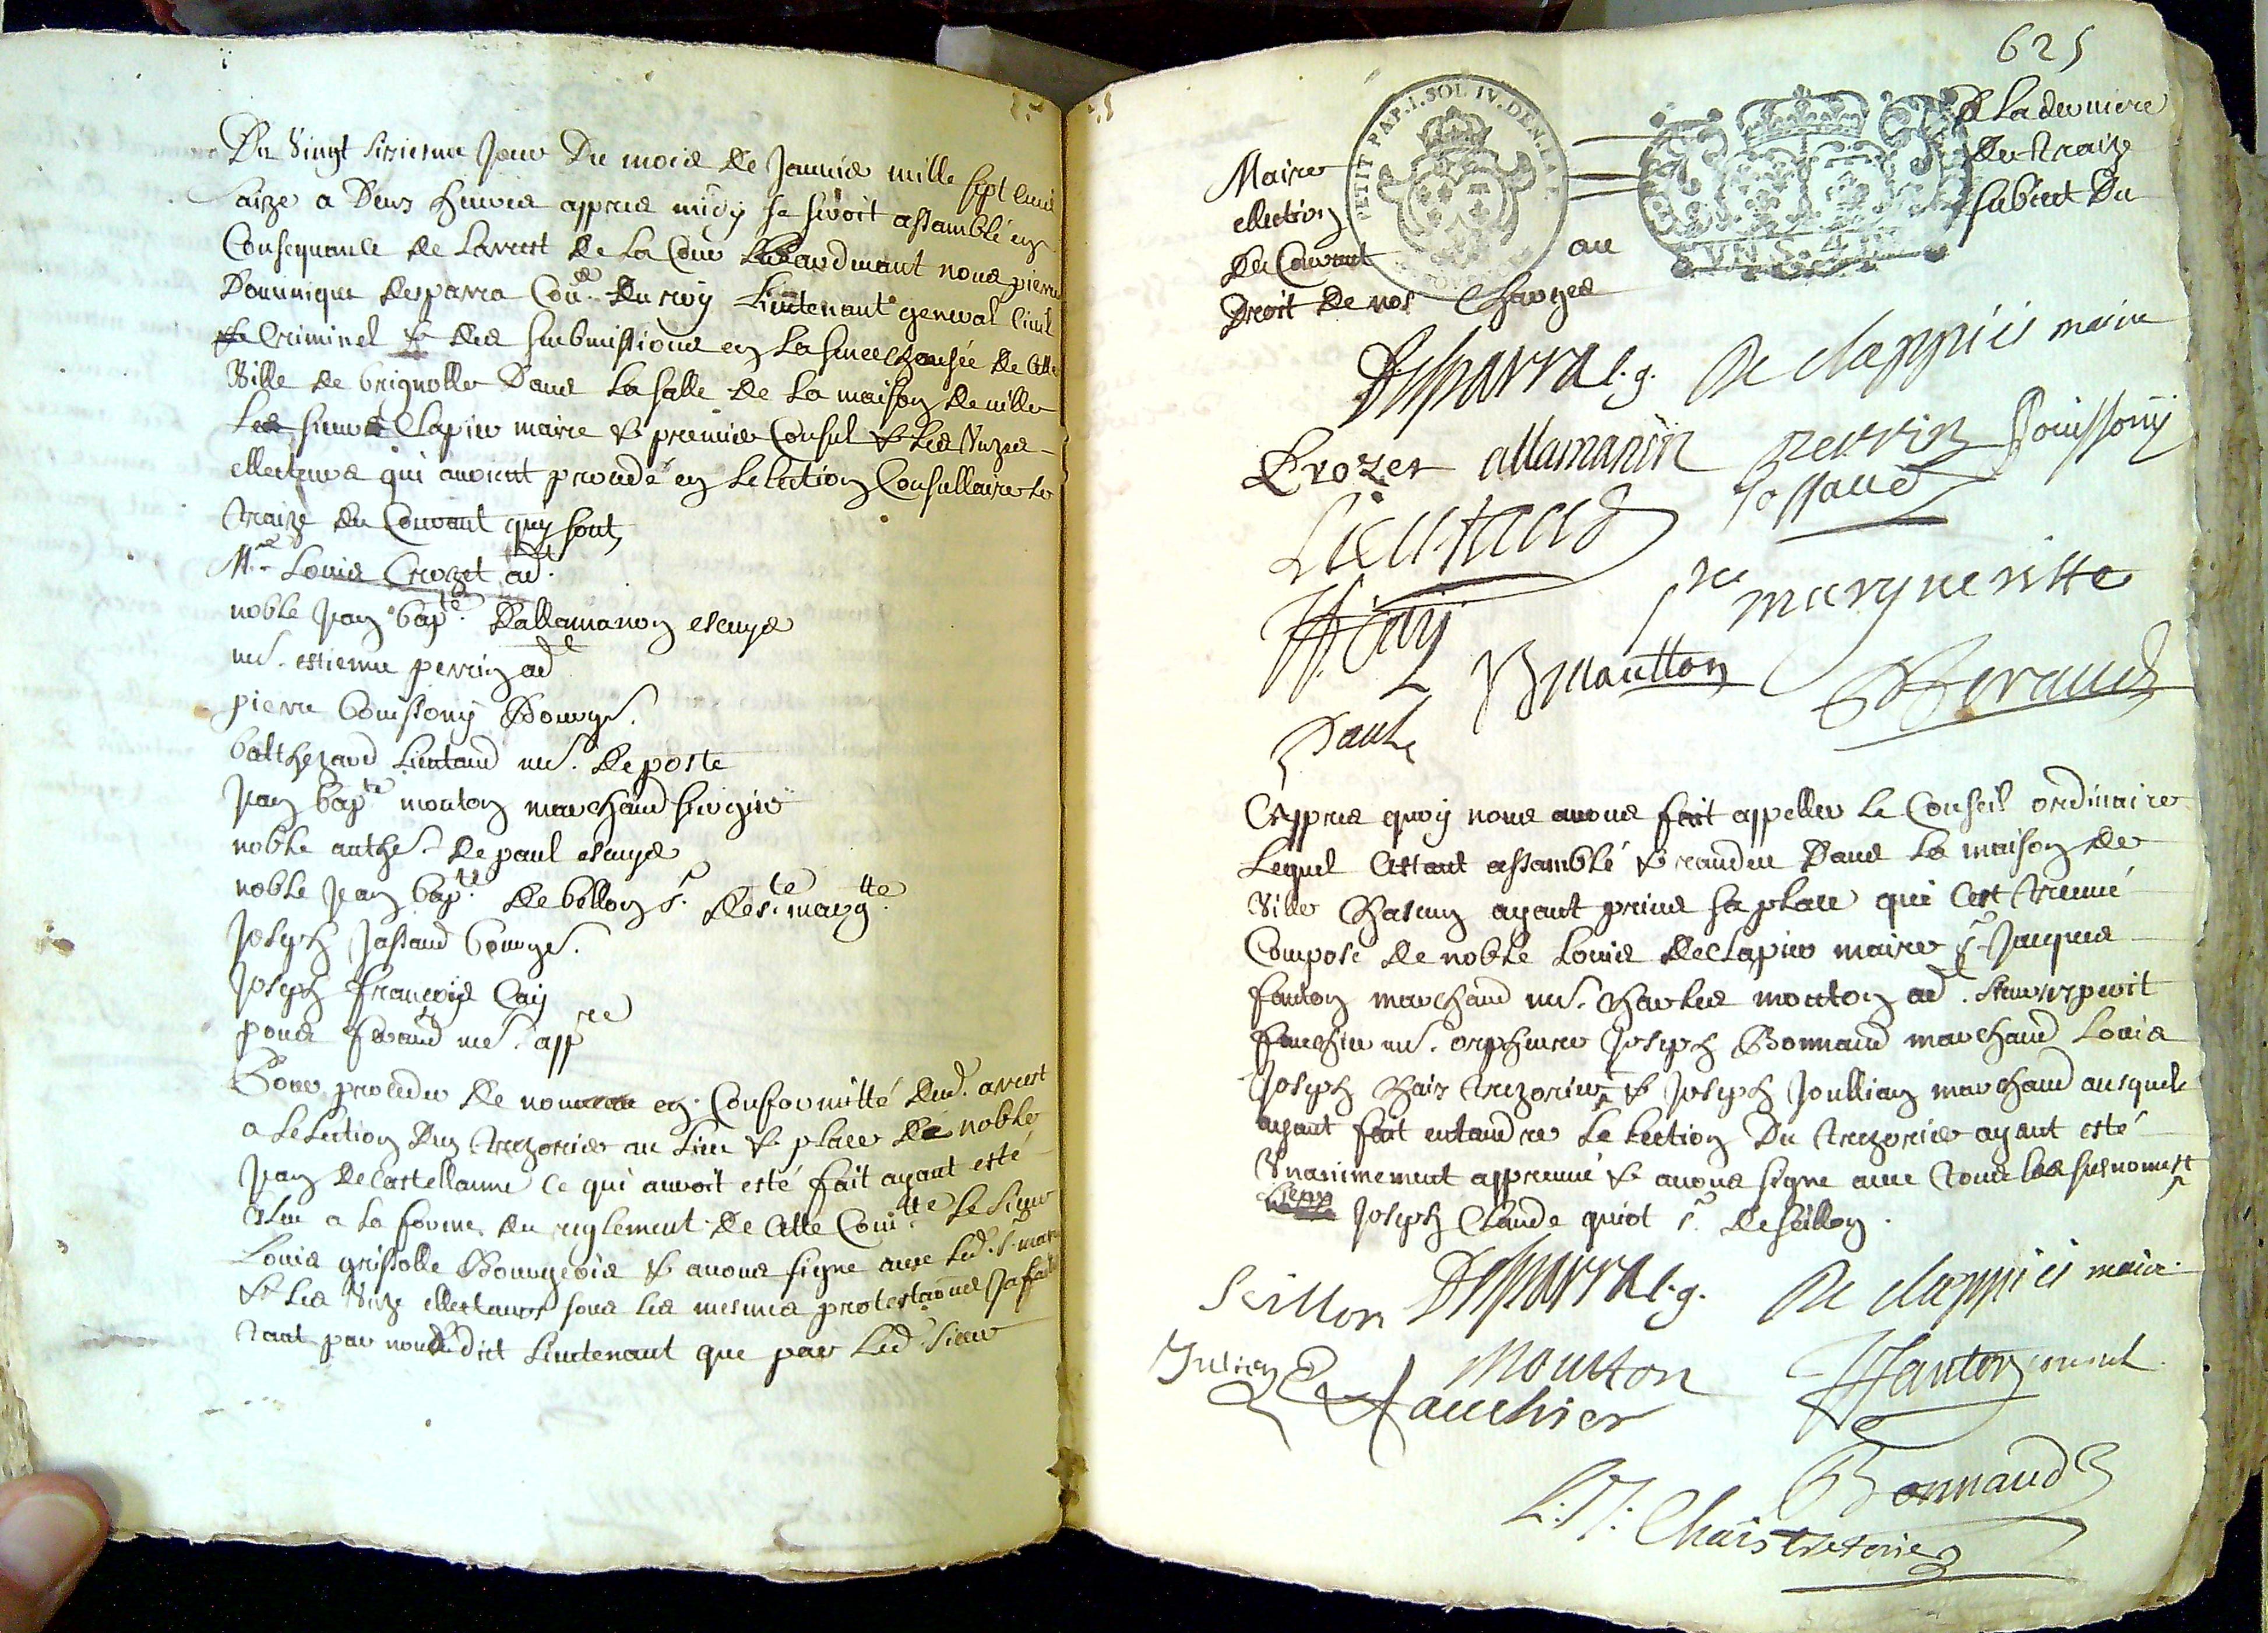 Du Vingt sixiesme Jour Du mois De Janvier mille sept cens
saize a Deux heures appres midy se seroit assamblé en
Consequance De Larrest De La Cour pardevant nous pierre
Dominique Desparra Con.er Du roy Lieutenant general Civil
& Criminel & des submissions en La seneschaussée De Cette
Ville De brignolle Dans La salle De La maison De ville
Les sieurs Clapier maire & premier Consul & Les Unze
ellecteurs qui avoient procedé en Lelection Consullaire Le
traize du Courant quy sont
M.re Louis Crozet ad.t
noble Jean bap.te Dallamanon escuyer
me. estienne perrin ad.t
pierre bouissony Bourgs.
balthezard Lieutaud me. De poste
Jean bap.te mouton marchand
noble anthe. De paul escuyer
noble Jean bap.te De bellon s.r De s.te marg.tte
Joseph Jassaud bourgs.
Joseph françois Cay
pons feraud me. app.re
Pour proceder De nouveau en Conformitté Dud. arrest
a Lelection Dun trezorier au Lieu & place De noble
Jean De Castellanne Ce qui auroit esté fait ayant esté
eslu a La forme du reglement De Cette Com.tte Le sieur
Louis grissolle Bourgeois & avons signe avec Led. s. maire
& Les Unze ellecteurs sous Les mesmes protestaõns Ja faites
tant par nousdit Lieutenant que par Led. sieur
625
PETIT PAP. 1. SOL IV. DEN. LA F.
VN S. 4 D.
Maire & La derniere
ellection De traize
Du Courant au subiect Du
Droit De nos Charges
Desparra l. g. De clappiers maire
Crozet allamanon perrin Bouissony
Lieutaud Jassaud
JF. Cay Ste margueritte
JB Moutton Feraud
Paul
Appres quoy nous avons fait appeller Le Conseil ordinaire
Lequel estant assamblé & randeu Dans La maison De
Ville Chascun ayant prins sa place qui cest treuvé
Composé De noble Louis De Clapier maire s.r Jacques
fanton marchand me. Charles mouton ad.t
fauchier me. orphevre Joseph Bonnaud marchand Louis
Joseph Chais trezorier & Joseph Joullian marchand ausquels
ayant fait entandre Lelection Du trezorier ayant esté
Unanimement appreuvé & avons signe avec tous Les susnomes
Joseph Claude quiot s.r De seillon
Seillon Desparra l. g. De clappiers maire
Julien Mouton JFanton consul
Fauchier
Bonnaud
L. J. Chais tresorier